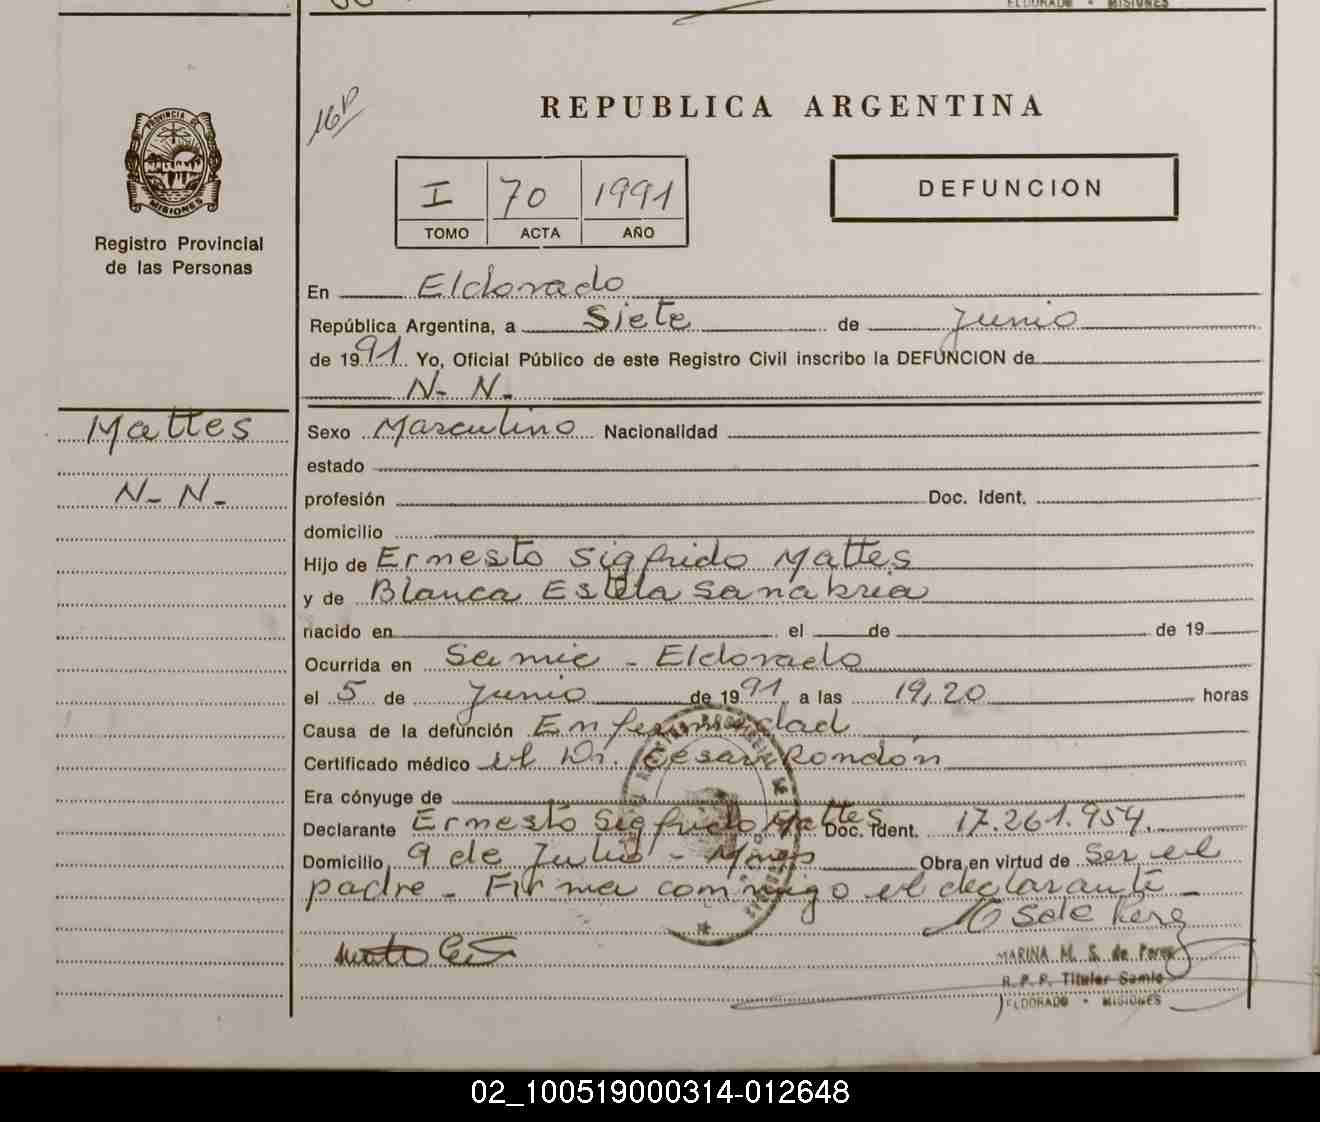 ELDORADO - MISIONES
16D
REPUBLICA ARGENTINA
I 70 1991
TOMO ACTA AÑO
DEFUNCION
PROVINCIA DE
MISIONES
Registro Provincial
de las Personas
En Eldorado
República Argentina, a Siete de Junio
de 1991. Yo, Oficial Público de este Registro Civil inscribo la DEFUNCION de
N- N.
Mattes
N- N-
Sexo Masculino Nacionalidad
estado
profesión Doc. Ident.
domicilio
Hijo de Ernesto Sigfrido Mattes
y de Blanca Estela Sanabria
nacido en el de de 19
Ocurrida en Samic - Eldorado
el 5 de Junio de 1991 a las 19,20 horas
Causa de la defunción Enfermedad
Certificado médico el Dr. Cesar Rondón
Era cónyuge de
Declarante Ernesto Sigfrido Mattes Doc. Ident. 17.261.954.
Domicilio 9 de Julio - Mnes Obra en virtud de Ser el
padre - Firma conmigo el declarante -
MARINA M. S. de Perez
R. P. P. Titular Samic
ELDORADO - MISIONES
02_100519000314-012648